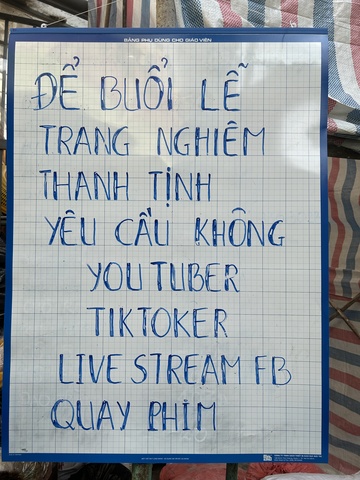 BẢNG PHỤ DÙNG CHO GIÁO VIÊN
ĐỂ BUỔI LỄ
TRANG NGHIÊM
THANH TỊNH
YÊU CẦU KHÔNG
YOUTUBER
TIKTOKER
LIVE STREAM FB
QUAY PHIM